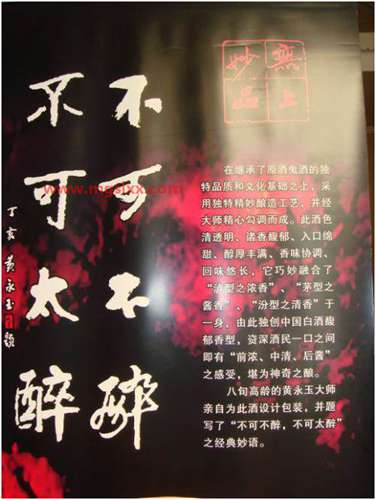 無上
妙品
不可不醉
不可太醉
丁亥黄永玉题
在继承了原酒鬼酒的独
特品质和文化基础之上，采
用独特精妙酿造工艺，并经
大师精心勾调而成。此酒色
清透明、诸香馥郁、入口绵
甜、醇厚丰满、香味协调、
回味悠长，它巧妙融合了
“泸型之浓香”、“茅型之
酱香”、“汾型之清香”于
一身，由此独创中国白酒馥
郁香型，资深酒民一口之间
即有“前浓、中清、后酱”
之感受，堪为神奇之酿。
八旬高龄的黄永玉大师
亲自为此酒设计包装，并题
写了“不可不醉，不可太醉”
之经典妙语。